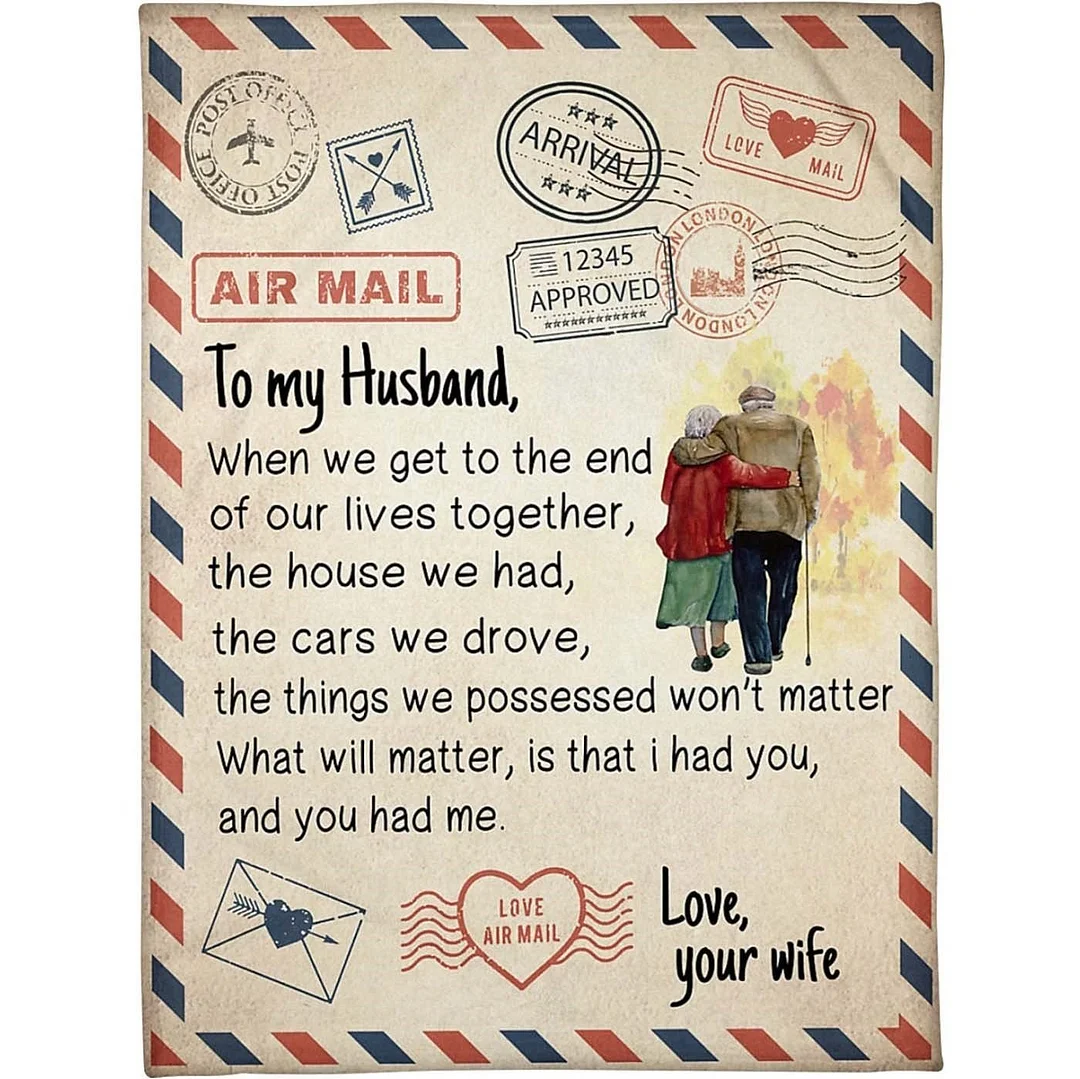 POST OFFICE POST OFFICE
ARRIVAL
LOVE MAIL
AIR MAIL
12345
APPROVED
LONDON LONDON LONDON
To my Husband,
When we get to the end
of our lives together,
the house we had,
the cars we drove,
the things we possessed won't matter
What will matter, is that i had you,
and you had me.
LOVE
AIR MAIL
Love,
your wife